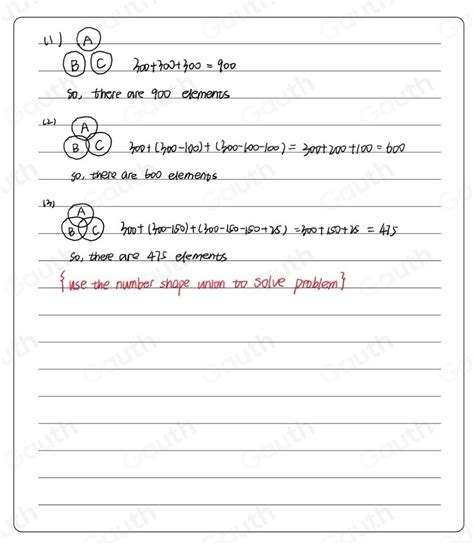 (1) A
B C 300+300+300 = 900
So, there are 900 elements
(2) A
B C 300+(300-100)+(300-100-100) = 300+200+100 = 600
So, there are 600 elements
(3) A
B C 300+(300-150)+(300-150-150+25) =300+150+25 = 475
So, there are 475 elements
{use the number shape union to solve problem}
Gauth